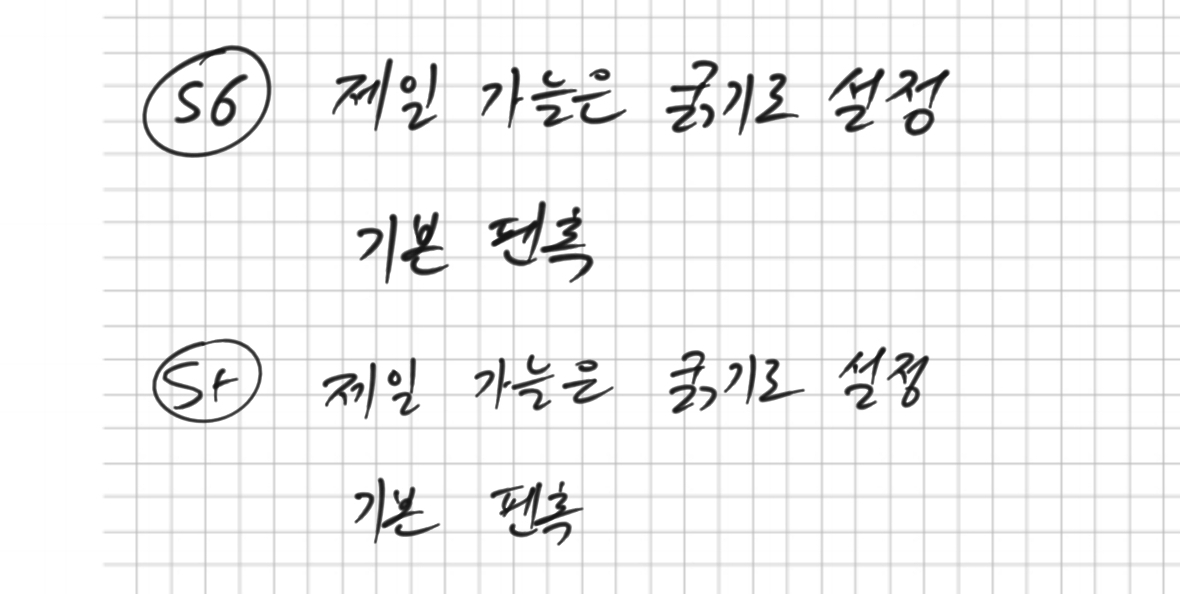 S6 제일 가늘은 굵기로 설정
기본 펜촉
S+ 제일 가늘은 굵기로 설정
기본 펜촉